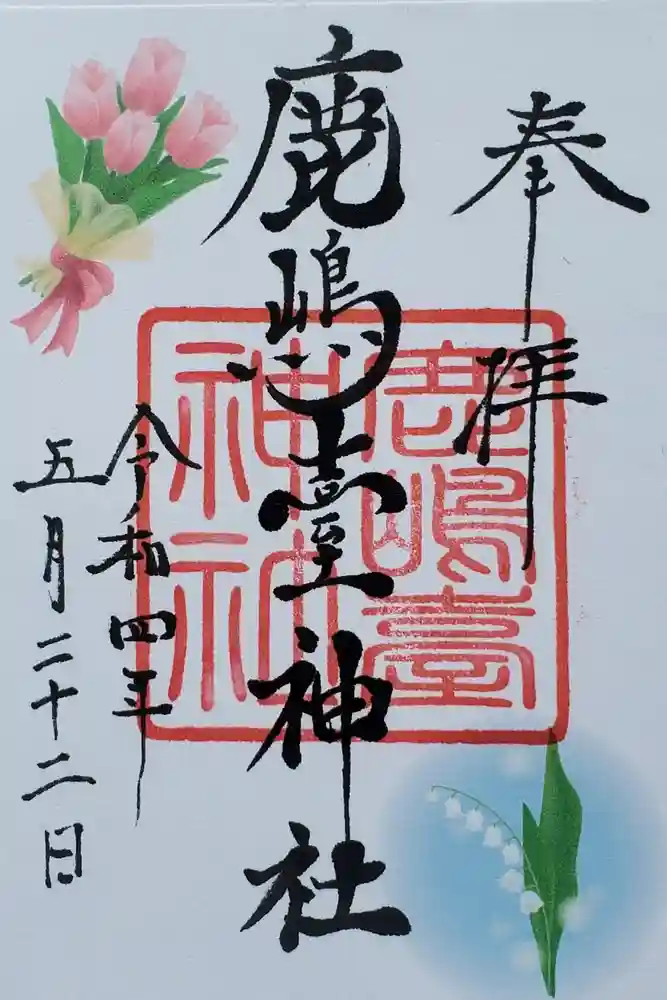 奉拝
鹿嶋臺神社
鹿嶋臺
神社
令和四年
五月二十二日